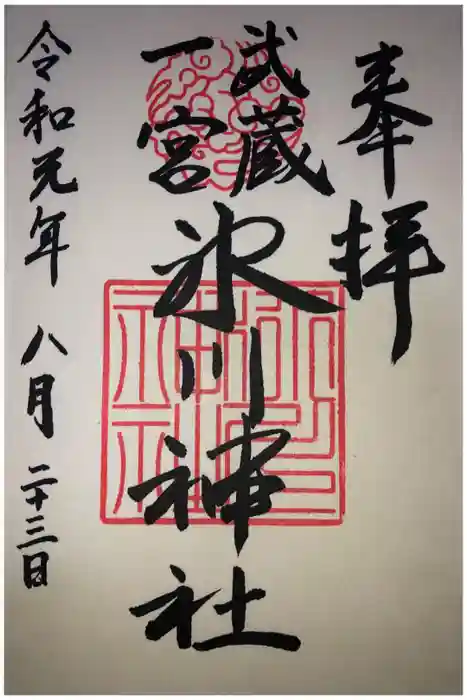 奉拝
武蔵
一宮
氷川神社
令和元年 八月 二十三日